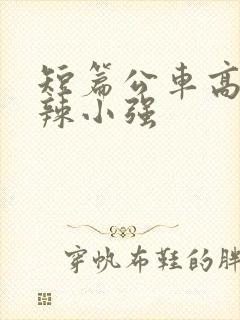 短篇公车高
辣小强
穿帆布鞋的胖